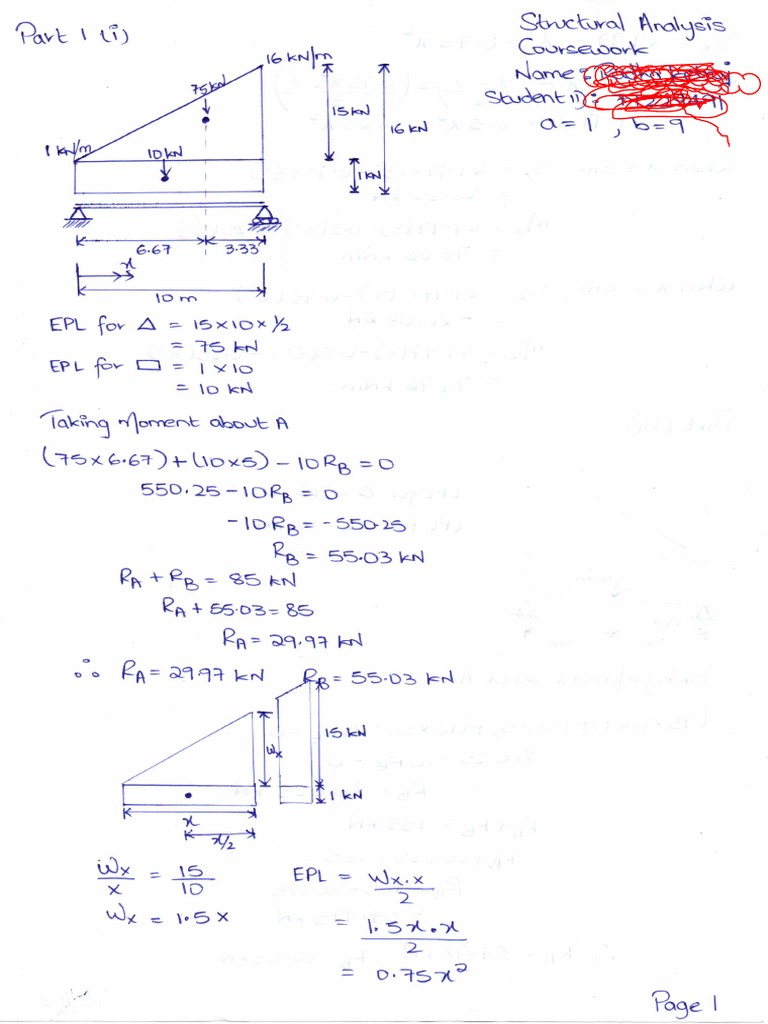 Part 1 (i)
Structural Analysis
Coursework
Name:
Student ID:
a = 1 , b = 9
16 kN/m
75kN
15 kN
16 kN
1 kN/m
10 kN
1 kN
6.67
3.33
x
10 m
EPL for △ = 15 × 10 × 1/2
= 75 kN
EPL for ▭ = 1 × 10
= 10 kN
Taking Moment about A
(75 × 6.67) + (10 × 5) - 10 R_B = 0
550.25 - 10 R_B = 0
-10 R_B = -550.25
R_B = 55.03 kN
R_A + R_B = 85 kN
R_A + 55.03 = 85
R_A = 29.97 kN
∴ R_A = 29.97 kN R_B = 55.03 kN
w_x
15 kN
1 kN
x
x/2
w_x/x = 15/10
w_x = 1.5 x
EPL = w_x . x / 2
= 1.5x . x / 2
= 0.75x²
Page 1